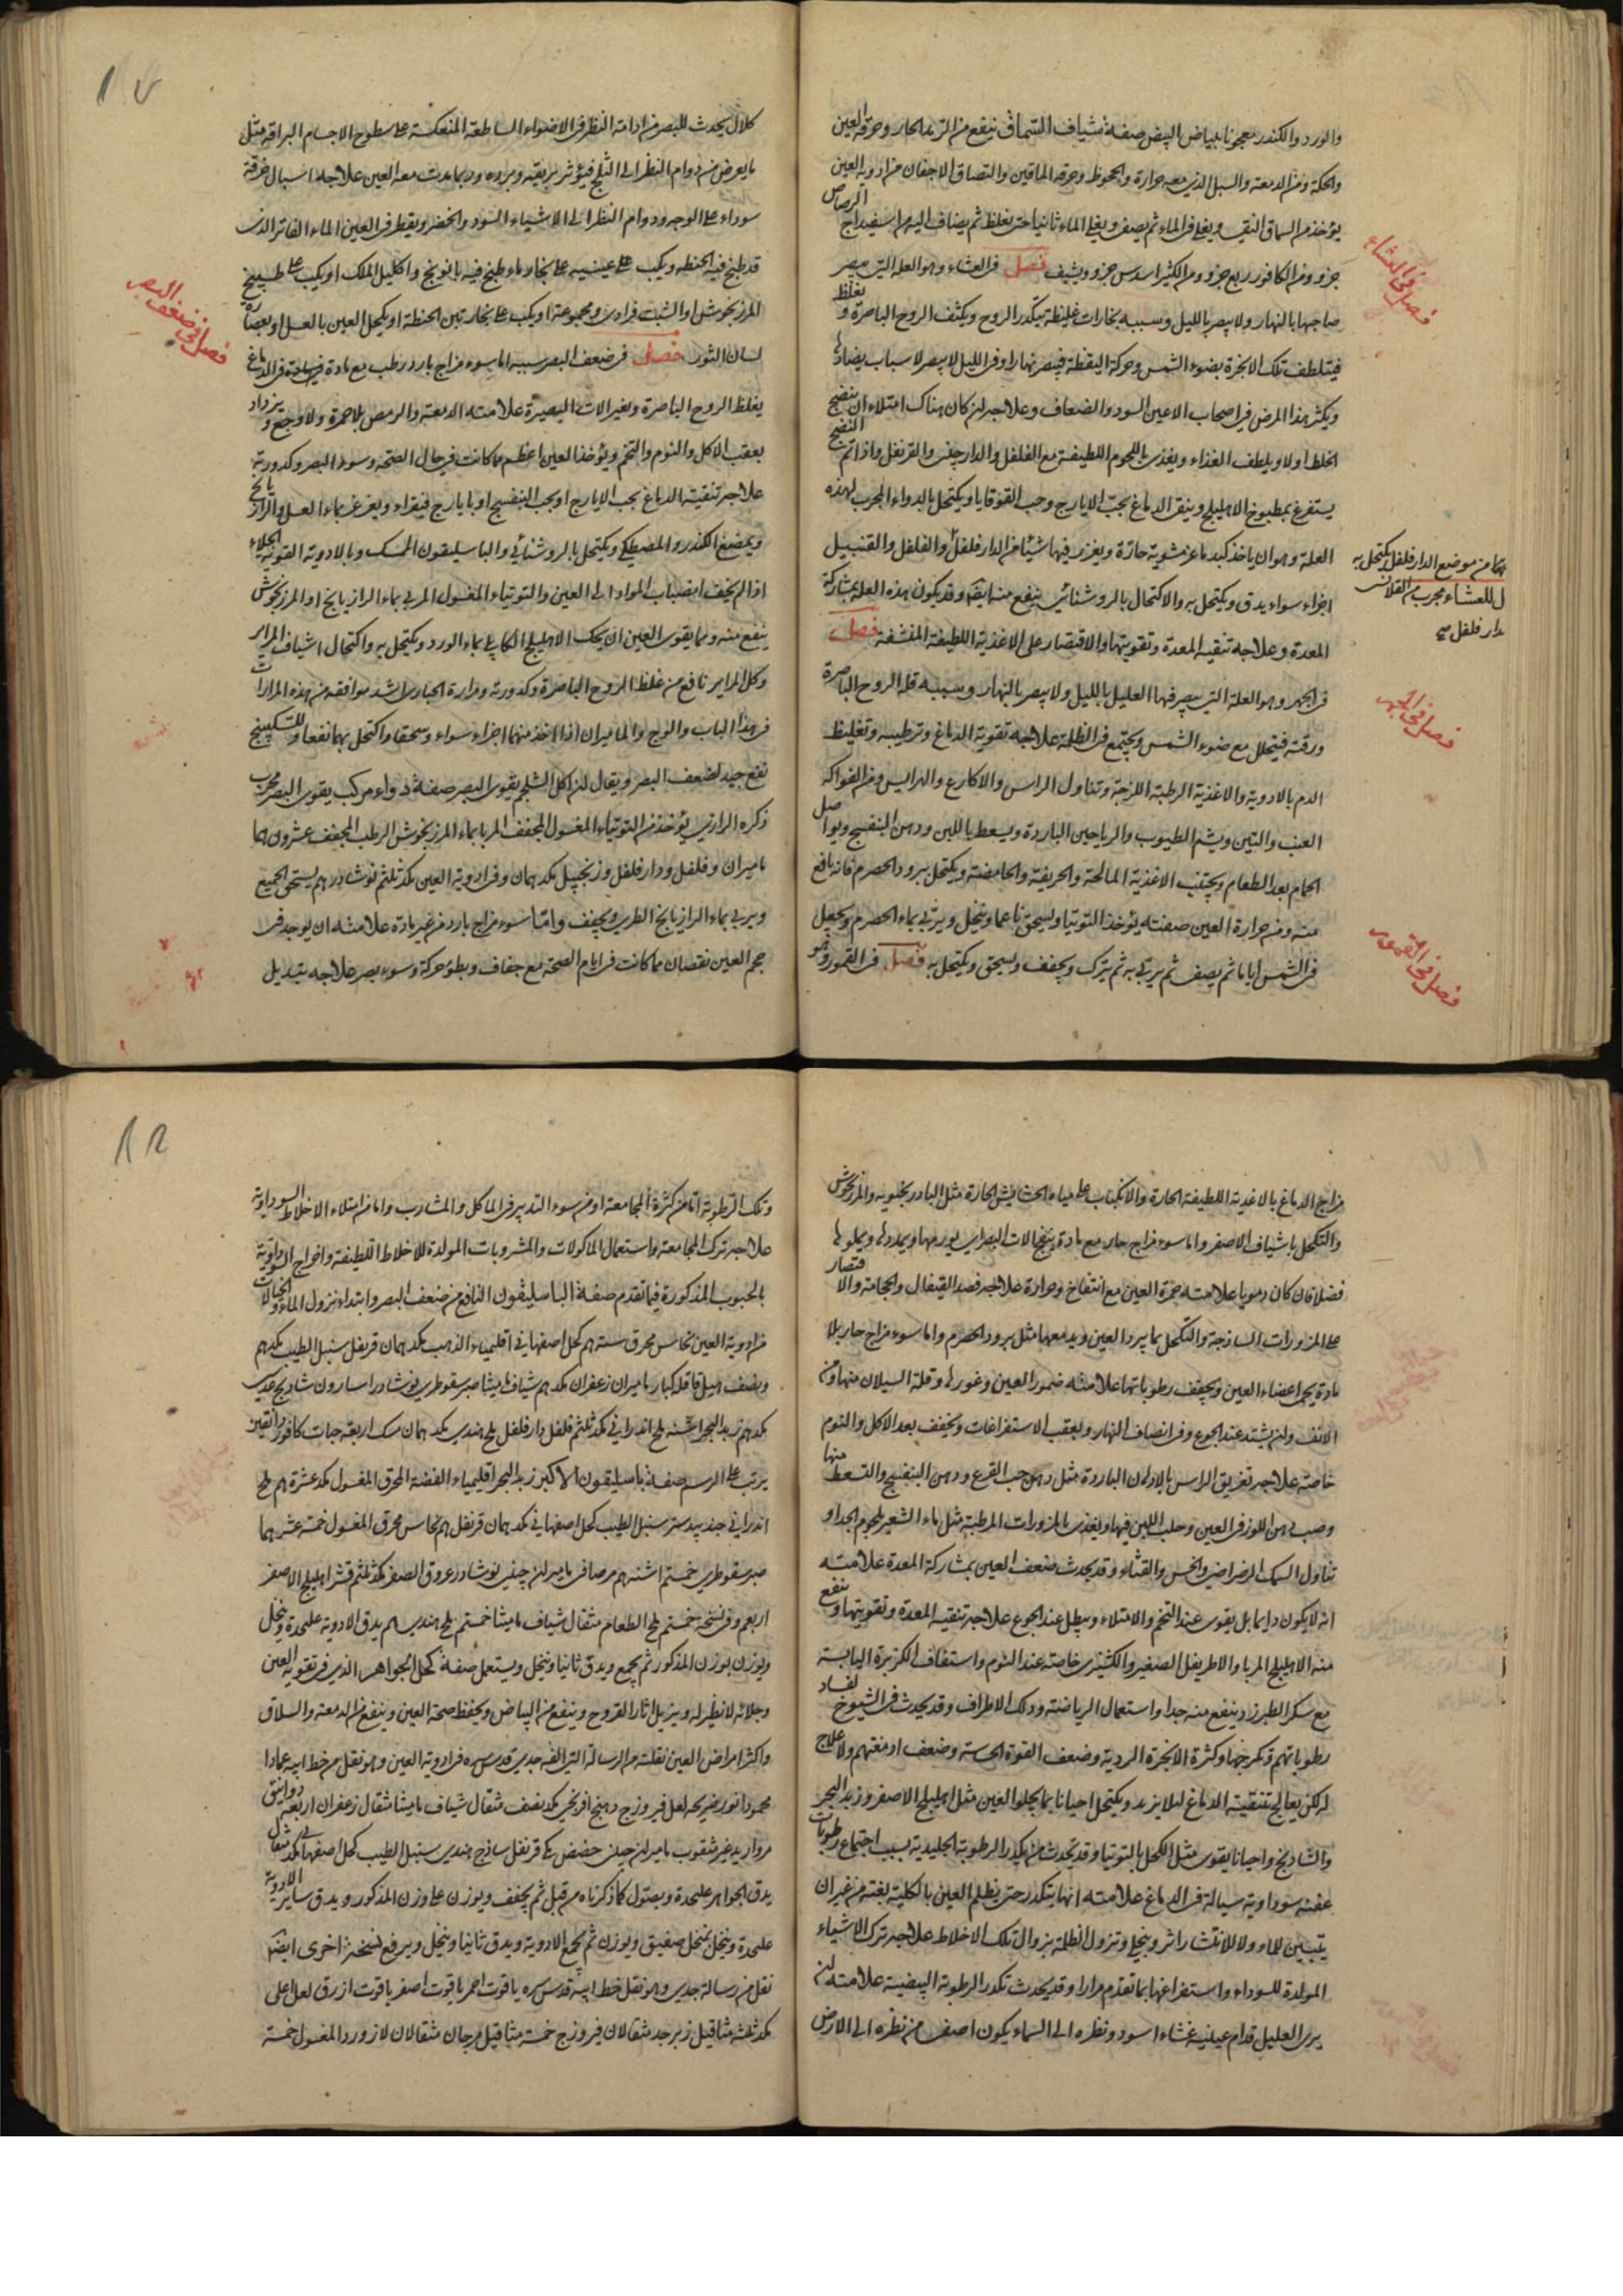 والورد والكندر معجونا ببياض البيض صفة شياف السماق ينفع من الرمد الحار وحرقة العين
والحكة ومن الدمعة والسبل الذي معه حرارة والجحوظ وحرقة الماقين والتصاق الاجفان من ادوية العين
يؤخذ من السماق النقي ويغلي في الماء ثم يصفى ويغلي الماء ثانيا حتى يغلظ ثم يضاف اليه من اسفيداج الرصاص
جزو ومن الكافور ربع جزو ومن الكثيرا سدس جزو ويشيف فصل في العشاء وهو العلة التي يبصر
صاحبها بالنهار ولا يبصر بالليل وسببه بخارات غليظة تكدر الروح ويكثف الروح الباصرة ويغلظ
فيتلطف تلك الابخرة بضوء الشمس وحركة اليقظة فيبصر نهارا وفي الليل لا يبصر لاسباب يضادها
ويكثر هذا المرض في اصحاب الاعين السود والضعاف وعلاجه ان كان هناك امتلاء ان ينضج
الخلط اولا ويلطف الغذاء ويغذي باللحوم اللطيفة مع الفلفل والدارچيني والقرنفل واذا تم النضج
يستفرغ بمطبوخ الاهليلج وينقى الدماغ بحب الايارج وحب القوقايا ويكتحل بالدواء المجرب لهذه
العلة وهو ان ياخذ كبد ماعز مشوية حارة ويغرز فيها شيئا من الدار فلفل والفلفل والقنبيل
اجزاء سواء يدق ويكتحل به والاكتحال بالروشنائي ينفع منه ايضا وقد يكون هذه العلة بمشاركة
المعدة وعلاجه تنقية المعدة وتقويتها والاقتصار على الاغذية اللطيفة المنشفة فصل
في الجهر وهو العلة التي يبصر فيها العليل بالليل ولا يبصر بالنهار وسببه قلة الروح الباصرة
ورقته فيتحلل مع ضوء الشمس ويجتمع في الظلمة علاجه تقوية الدماغ وترطيبه وتغليظ
الدم بالادوية والاغذية الرطبة اللزجة وتناول الراس والاكارع والهرايس ومن الفواكه
العنب والتين ويشم الطيوب والرياحين الباردة ويسعط باللبن ودهن البنفسج ويواصل
الحمام بعد الطعام ويجتنب الاغذية المالحة والحريفة والحامضة ويكتحل ببرود الحصرم فانه نافع
منه ومن حرارة العين صفته يؤخذ التوتيا ويسحق ناعما وينخل ويربي بماء الحصرم ويجعل
في الشمس اياما ثم يصفى ثم يربي به ثم يترك ويجفف ويسحق ويكتحل به فصل في القمور وهو
فصل في العشاء
فصل في الجهر
فصل في القمور
كلال يحدث للبصر من ادامة النظر في الاضواء الساطعة المنعكسة على سطوح الاجسام البراقة مثل
ما يعرض من دوام النظر الى الثلج فيؤثر بريقه وبرده وربما بدت معه العين علاجه اسبال خرقة
سوداء على الوجه ودوام النظر الى الاشياء السود والخضر ويقطر في العين الماء الفاتر الذي
قد طبخ فيه الحنطة ويكب على عينيه على بخار ماء طبخ فيه بابونج واكليل الملك او يكب على طبيخ
المرزنجوش او الشبت فرادى ومجموعة او يكب على بخار تبن الحنطة او يكحل العين بالعسل او بعصارة
لسان الثور فصل في ضعف البصر سببه اما سوء مزاج بارد رطب مع مادة في الدماغ
يغلظ الروح الباصرة ويغير الات البصيرة علامته الدمعة والرمص بلا حمرة ولا وجع ويزداد
بعقب الاكل والنوم والتخم ويؤخذ العين اعظم مما كانت في حال الصحة وسوء البصر وكدورته
علاجه تنقية الدماغ بحب الايارج او بحب البنفسج او بايارج فيقراء ويغرغر بماء العسل والرازيانج
ويمضغ الكندر والمصطكي ويكتحل بالروشنائي والباسليقون الممسك وبالادوية القوية الجلاء
اذا لم يخف انصباب المواد الى العين والتوتياء المغسول المربى بماء الرازيانج او المرزنجوش
ينفع منه ومما يقوي العين ان يحك الاهليلج الكابلي بماء الورد ويكتحل به واكتحال اشياف المراير
وكل المراير نافع من غلظ الروح الباصرة وكدورته ومرارة الحبارى اشد موافقة من هذه المرارات
في هذا الباب والوج والماميران اذا اخذ منهما اجزاء سواء وسحقا واكتحل بهما نفعا وللسكبينج
نفع جيد لضعف البصر ويقال ان اكل الشلجم يقوي البصر صفة دواء مركب يقوي البصر مجرب
ذكره الرازي يؤخذ من التوتياء المغسول المجفف المربا بماء المرزنجوش الرطب المجفف عشرون
ماميران وفلفل ودار فلفل وزنجبيل نوشادر يسحق الجميع
ويربي بماء الرازيانج الطري ويجفف واما سوء مزاج بارد من غير مادة علامته ان يوجد في
حجم العين نقصان مما كانت في ايام الصحة مع جفاف وبطؤ حركة وسوء بصر علاجه تبديل
فصل في ضعف البصر
مزاج الدماغ بالاغذية اللطيفة الحارة والانكباب على مياه الحشايش الحارة مثل البادرنجبويه والمرزنجوش
والتكحل باشياف الاصفر واما سوء مزاج حار مع مادة
فضلا فان كان دمويا علامته حمرة العين مع انتفاخ وحرارة علاجه فصد القيفال والحجامة والاقتصار
على المزورات الساذجة والتكحل بما يبرد العين ويدمعها مثل برود الحصرم واما سوء مزاج حار بلا
مادة يحمي اعضاء العين ويجفف رطوباتها علامته ضمور العين وغورها وقلة السيلان منها ومن
الانف وان يشتد عند الجوع وفي انصاف النهار وبعقب الاستفراغات ويخفف بعد الاكل والنوم
خاصة علاجه تغريق الراس بالادهان الباردة مثل دهن حب القرع ودهن البنفسج والتسعط منها
وصب دهن اللوز في العين وحلب اللبن فيها ويغذي بالمزورات المرطبة مثل ماء الشعير
تناول السمك الرضراضي والخس والقثاء وقد يحدث ضعف العين بمشاركة المعدة علامته
انه لا يكون دايما بل يقوى عند التخم والامتلاء ويبطل عند الجوع علاجه تنقية المعدة وتقويتها وينفع
منه الاهليلج المربا والاطريفل الصغير والكشنيزي خاصة عند النوم واستفاف الكزبرة اليابسة
مع سكر الطبرزد ينفع منه جدا واستعمال الرياضة ودلك الاطراف وقد يحدث في الشيوخ لفساد
رطوباتهم وكثرة الابخرة الردية وضعف القوة الحاسة وضعف ادمغتهم ولا علاج
له لكن يعالج بتنقية الدماغ لئلا يزيد ويكتحل احيانا بما يجلو العين مثل اهليلج الاصفر وزبد البحر
والشادنج واحيانا يقوي مثل الكحل بالتوتيا وقد يحدث من تكدر الرطوبة الجليدية بسبب اجتماع رطوبات
عفنة سوداوية سيالة في الدماغ علامته انها يتكدر حتى يظلم العين بالكلية بغتة من غير ان
يتبين للماء ولا للانتشار اثر وينجلي وتزول الظلمة بزوال تلك الاخلاط علاجه ترك الاشياء
المولدة للسوداء واستفراغها بما تقدم مرارا وقد يحدث تكدر الرطوبة البيضية علامته ان
يرى العليل قدام عينيه غشاء اسود ونظره الى السماء يكون اصفى من نظره الى الارض
وتلك الرطوبة اما من كثرة المجامعة او من سوء التدبير في الماكل والمشارب واما من امتلاء الاخلاط السوداوية
علاجه ترك المجامعة واستعمال الماكولات والمشروبات المولدة للاخلاط اللطيفة واخراج السوداوية
بالحبوب المذكورة فيما تقدم صفة الباسليقون النافع من ضعف البصر وابتداء نزول الماء والخيالات
من ادوية العين نحاس محرق كحل اصفهاني اقليمياء الذهب قرنفل سنبل الطيب
ونصف هيل قاقله كبار ماميران زعفران شياف ماميثا صبر سقوطري نوشادر اسارون شادنج
زبد البحر اشنه ملح اندراني فلفل دار فلفل ملح هندي مسك اربعة حبات كافور دانقين
يرتب على الرسم صفة باسليقون الاكبر زبد البحر اقليمياء الفضة المحرق المغسول عشرة ملح
اندراني جندبيدستر سنبل الطيب كحل اصفهاني قرنفل نحاس محرق المغسول خمسة عشر
صبر سقوطري اشنه مر صافي ماميران چيني نوشادر عروق الصفر قشر اهليلج الاصفر
وفي نسخة ملح الطعام مثقال شياف ماميثا ملح هندي يدق الادوية عليحدة وينخل
ويوزن بوزن المذكور ثم يجمع ويدق ثانيا وينخل ويستعمل صفة كحل الجواهر الذي في تقوية العين
وجلائه لا نظير له ويزيل اثار القروح وينفع من البياض ويحفظ صحة العين وينفع من الدمعة والسلاق
واكثر امراض العين نقلته من الرسالة التي الفه جدي قدس سره في ادوية العين وهو نقل من خط ابيه
لعل فيروزج دهنج افرنجي نصف مثقال شياف ماميثا مثقال زعفران اربعة دوانيق
مرواريد غير مثقوب ماميران چيني حضض مكي قرنفل ساذج هندي سنبل الطيب كحل اصفهاني مثقال
يدق الجواهر عليحدة ويصول كما ذكرناه من قبل ثم يجفف ويوزن على وزن المذكور ويدق ساير الادوية
عليحدة وينخل بمنخل صفيق ويوزن ثم يجمع الادوية ويدق ثانيا وينخل ويرفع نسخة اخرى ايضا
نقل من رسالة جدي وهو نقل خط ابيه قدس سره ياقوت احمر ياقوت اصفر ياقوت ازرق لعل اعلى
ثلثة مثاقيل زبرجد مثقالان فيروزج خمسة مثاقيل مرجان مثقالان لازورد المغسول خمسة